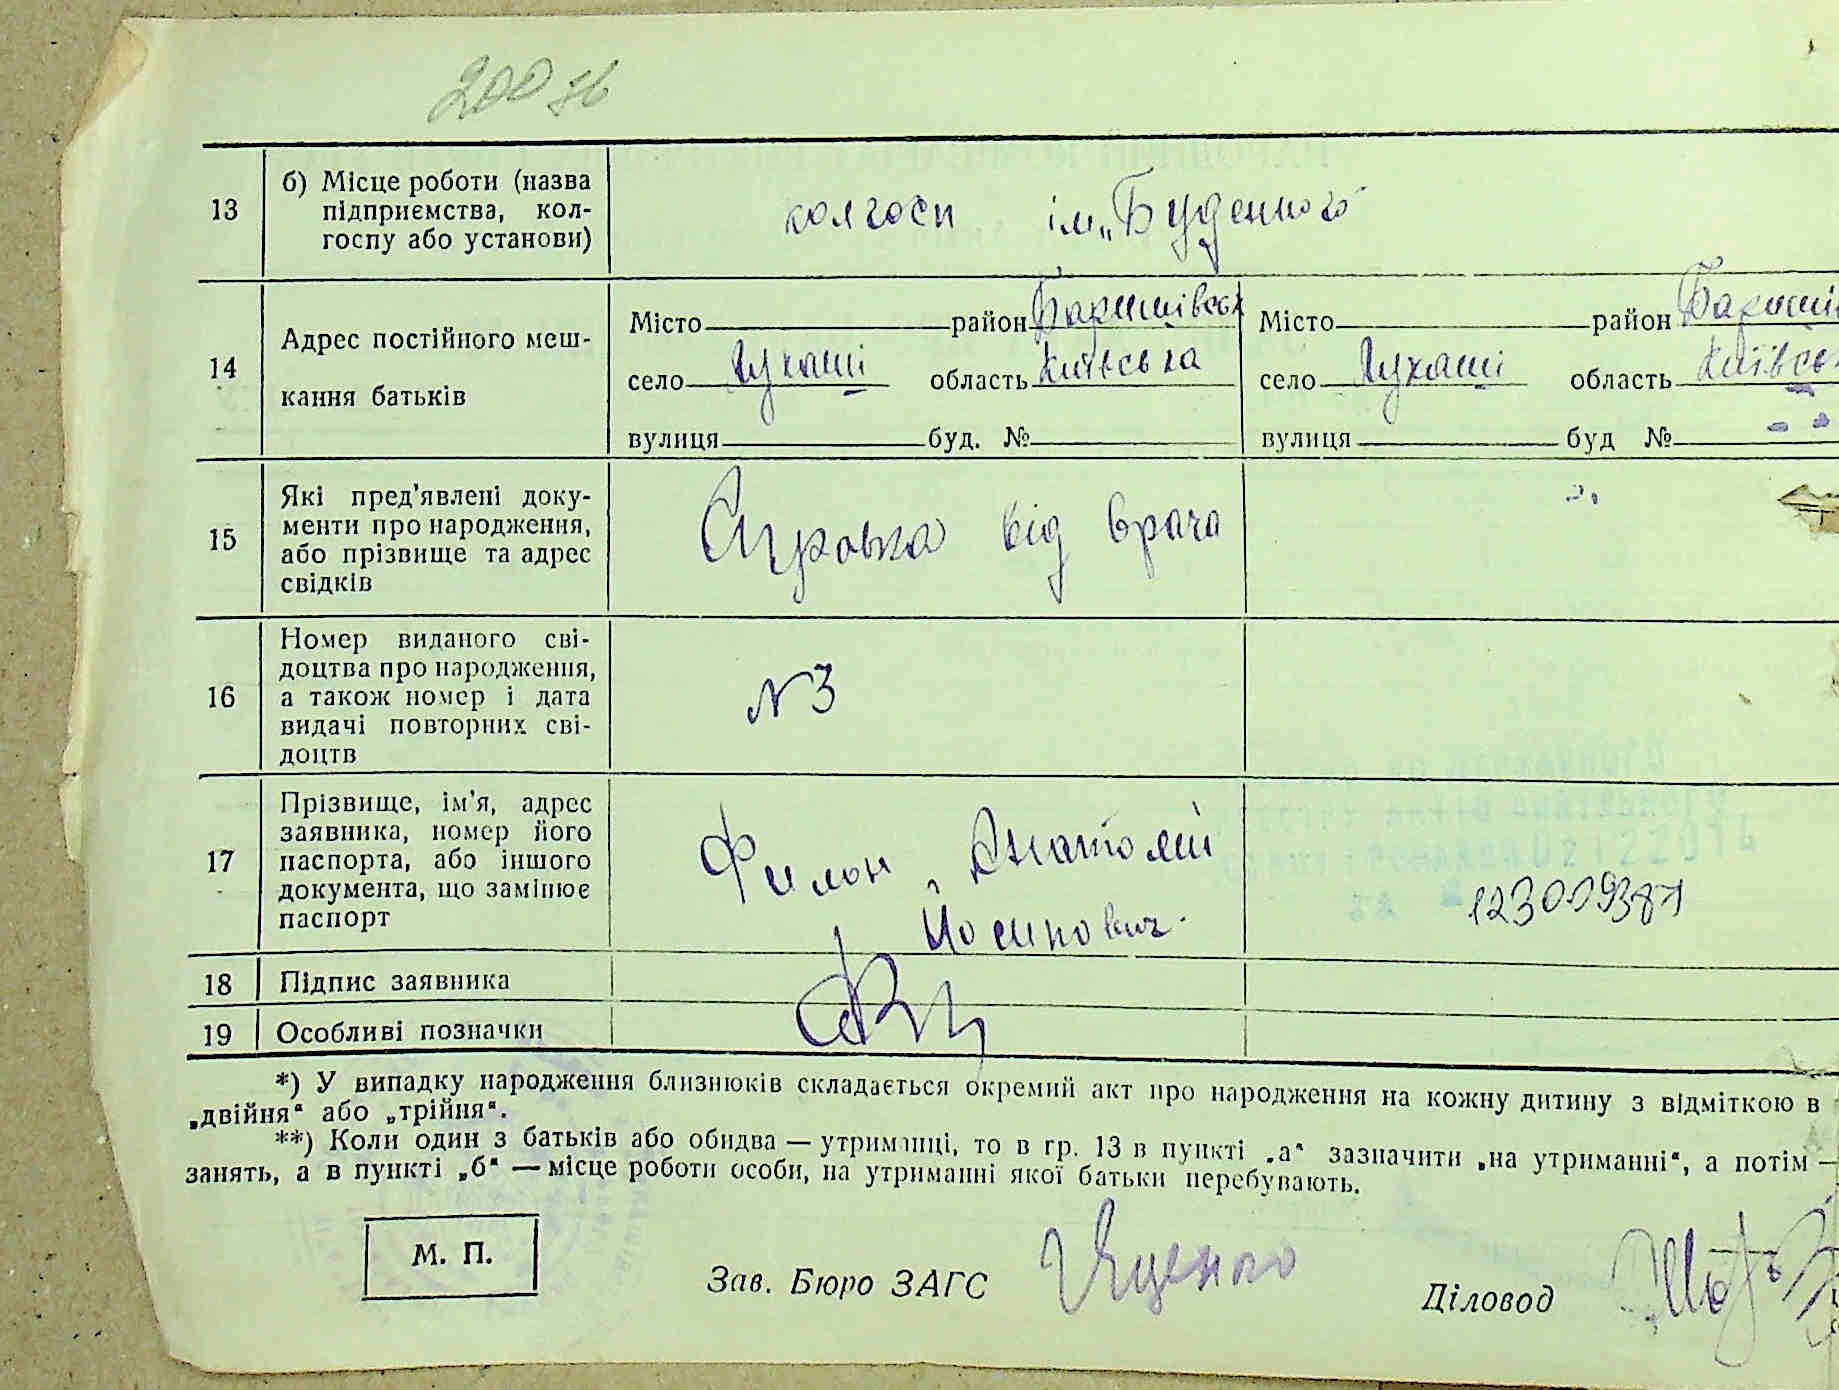 200 зв
13 б) Місце роботи (назва підприємства, колгоспу або установи) колгосп ім „Буденного
14 Адрес постійного мешкання батьків
Місто район Баришівськ Місто район Баришів
село Лукаші область Київська село Лукаші область Київськ
вулиця буд. № вулиця буд №
15 Які пред'явлені документи про народження, або прізвище та адрес свідків Справка від врача
16 Номер виданого свідоцтва про народження, а також номер і дата видачі повторних свідоцтв N 3
17 Прізвище, ім'я, адрес заявника, номер його паспорта, або іншого документа, що замінює паспорт Филон, Анатолій Йосипович. 123009387
18 Підпис заявника
19 Особливі позначки
*) У випадку народження близнюків складається окремий акт про народження на кожну дитину з відміткою в
„двійня“ або „трійня“.
**) Коли один з батьків або обидва — утриманці, то в гр. 13 в пункті „а“ зазначити „на утриманні“, а потім —
занять, а в пункті „б“ — місце роботи особи, на утриманні якої батьки перебувають.
М. П.
Зав. Бюро ЗАГС Яценко Діловод